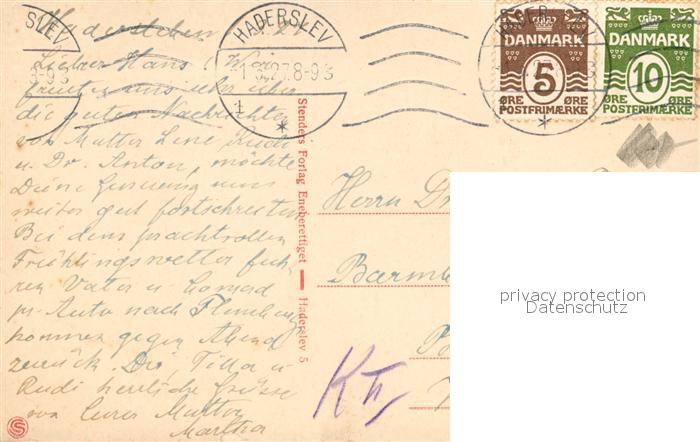 Hadersleben
Lieber Hans! Wir
freuten uns sehr über
die guten Nachrichten
von Mutter Lene, Rudi
u. Dr. Anton, möchte
Deine Genesung nun
weiter gut fortschreiten
Bei dem prachtvollen
Frühlingswetter fuh-
ren Vater u. Conrad
pr. Auto nach Flensburg
kommen gegen Abend
zurück. Dir, Tilla u.
Rudi herzliche Grüsse
von Eurer Mutter
Martha
SLEV
8-9
HADERSLEV
27.8-9
DANMARK
5
ØRE ØRE
POSTFRIMÆRKE
DANMARK
10
ØRE ØRE
POSTFRIMÆRKE
Stenders Forlag Eneberettiget — Haderslev 5
Herrn Dr
privacy protection
Datenschutz